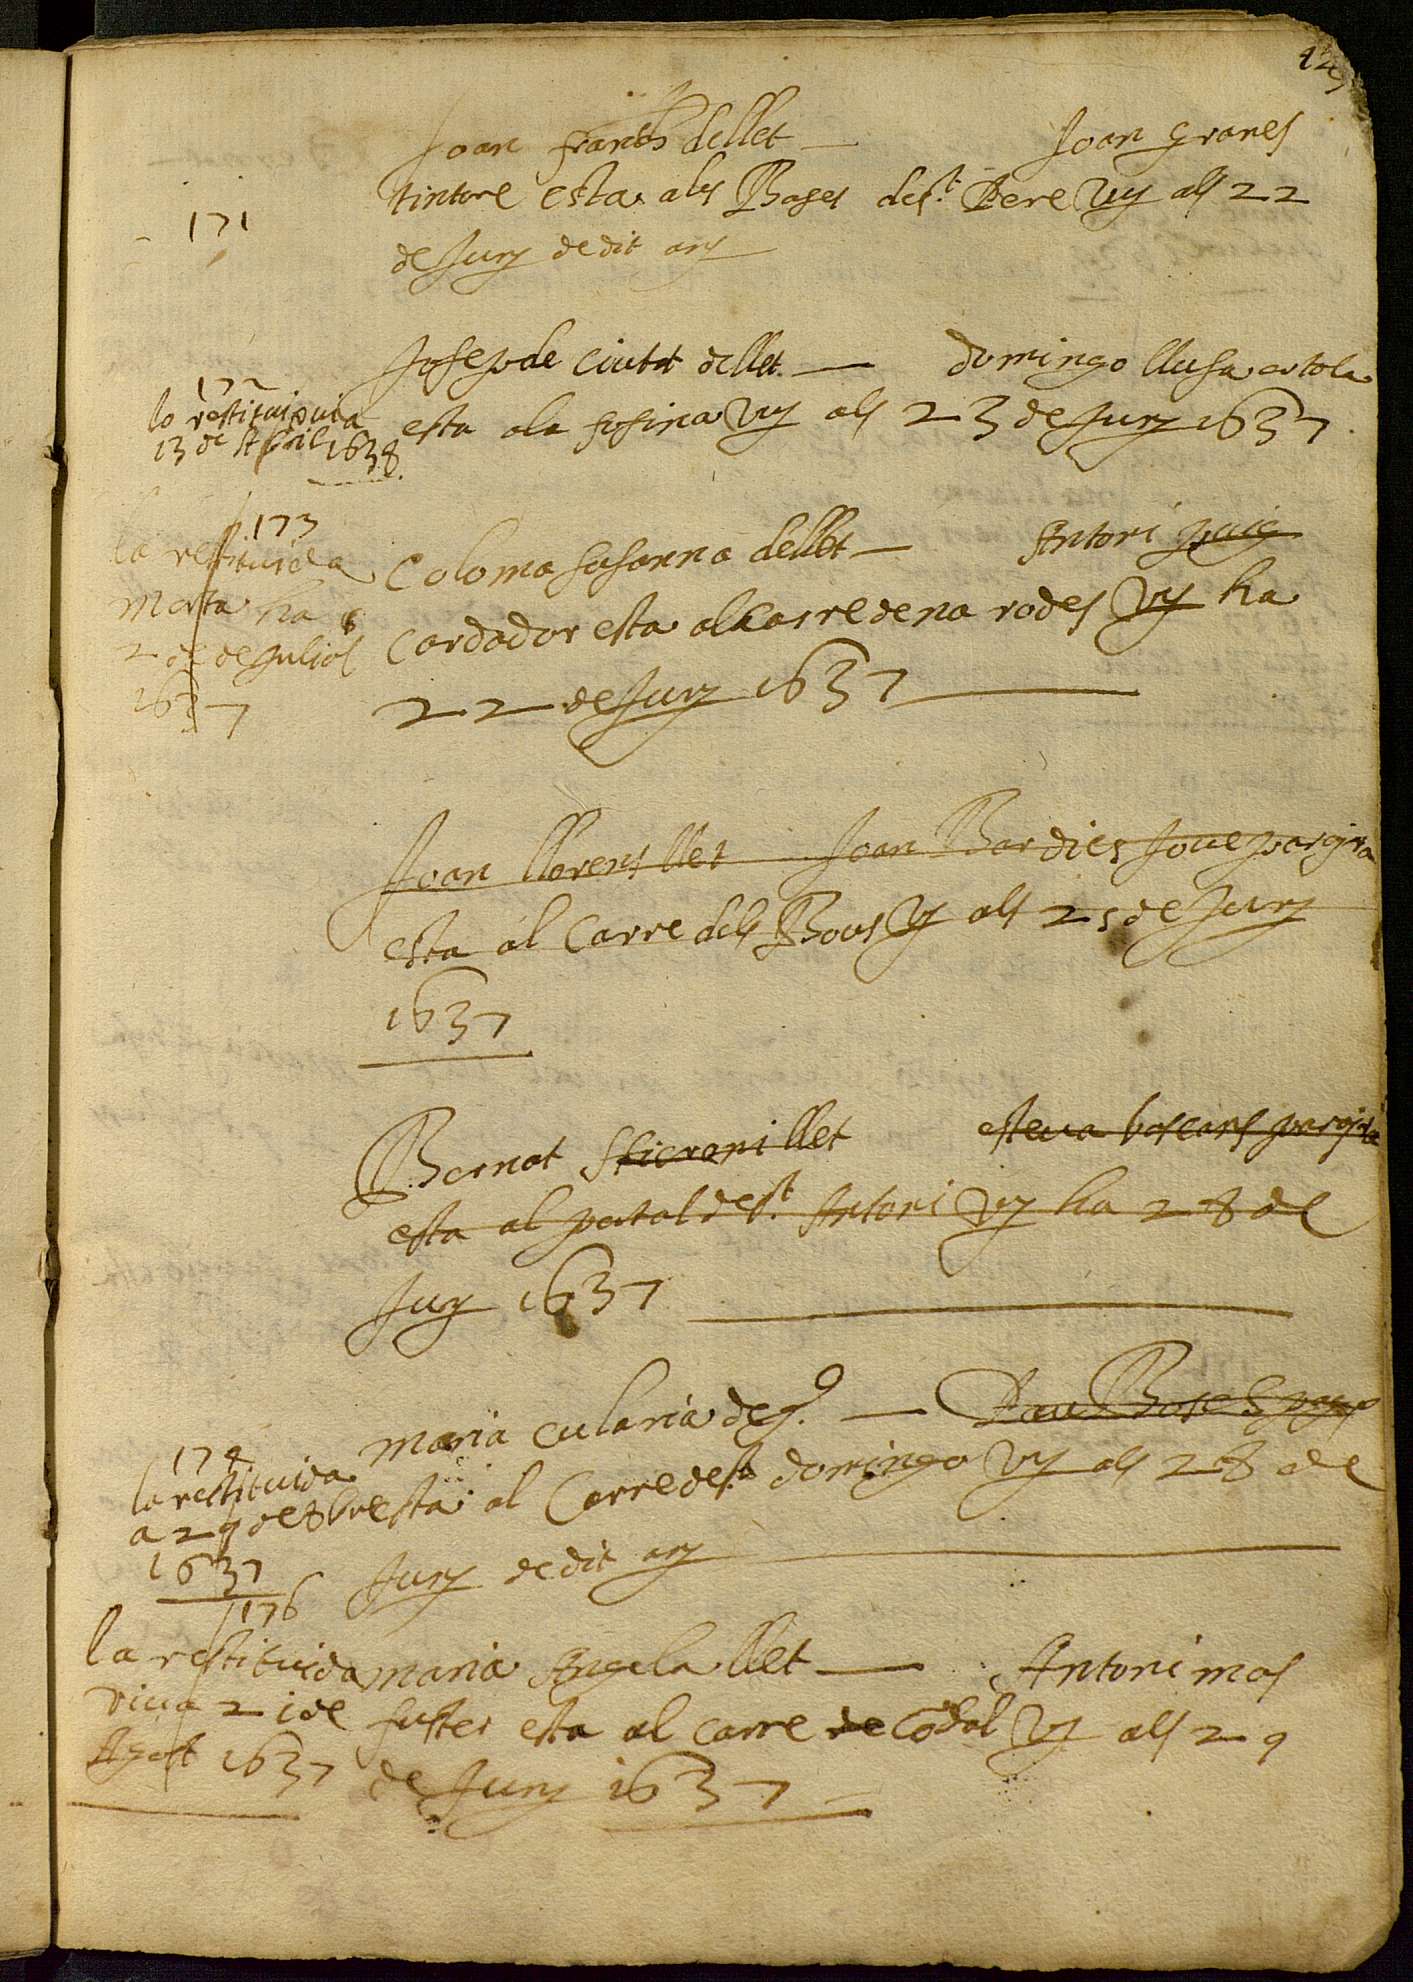 Joan franch dellet — Joan granes
tintore esta als Bases de st. Pere vuy als 22
171
de Juny de dit any
Josep de Ciutat dellet — domingo llusa ortola
172
lo restitui viva
13 de Abril 1638
esta ala fosina vuy als 23 de Juny 1637
173
la restituida
morta ha
2 de de Juliol
1637
Coloma sosanna dellet — Antoni puig
Cardador esta al carre de na rodes vy ha
22 de Juny 1637
Joan llorens llet Joan Bardies Jove
esta al Carre dels Bous vy als 25 de Juny
1637
Bernat llet esteva boscans
esta al portal de st. Antoni vy ha 28 de
Juny 1637
Maria eularia — Pau Bosc
174
la restituida
a 29 de 8bre
1637
esta al Carre de st domingo vy als 28 de
Juny de dit any
176
la restituida
viva 21 de
Agost 1637
maria Angela llet — Antoni mas
fuster esta al carre de Codol vy als 29
de Juny 1637